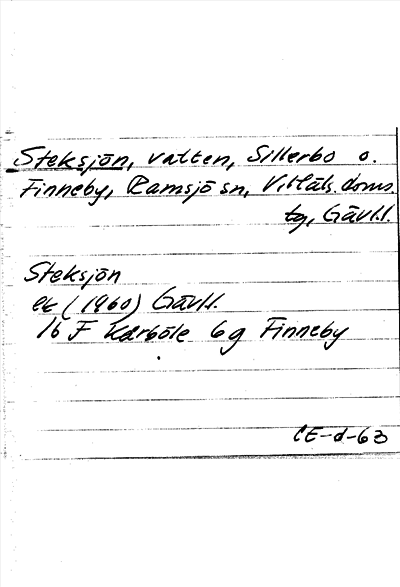 Steksjön, vatten, Sillerbo o.
Finneby, Ramsjö sn, V. Häls. doms.
tg, Gävl.l.
Steksjön
ek (1960) Gävl.l.
16 F Kårböle 6g Finneby
CE-d-63